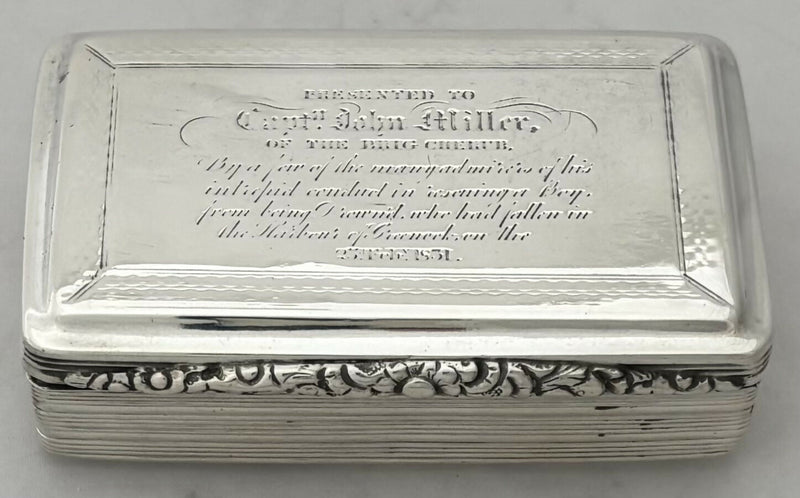 PRESENTED TO
Captn. John Miller,
OF THE BRIG CHERUB,
By a few of the many admirers of his
intrepid conduct in rescuing a Boy,
from being Drown'd, who had fallen in
the Harbour of Greenock, on the
FEB. 1831.